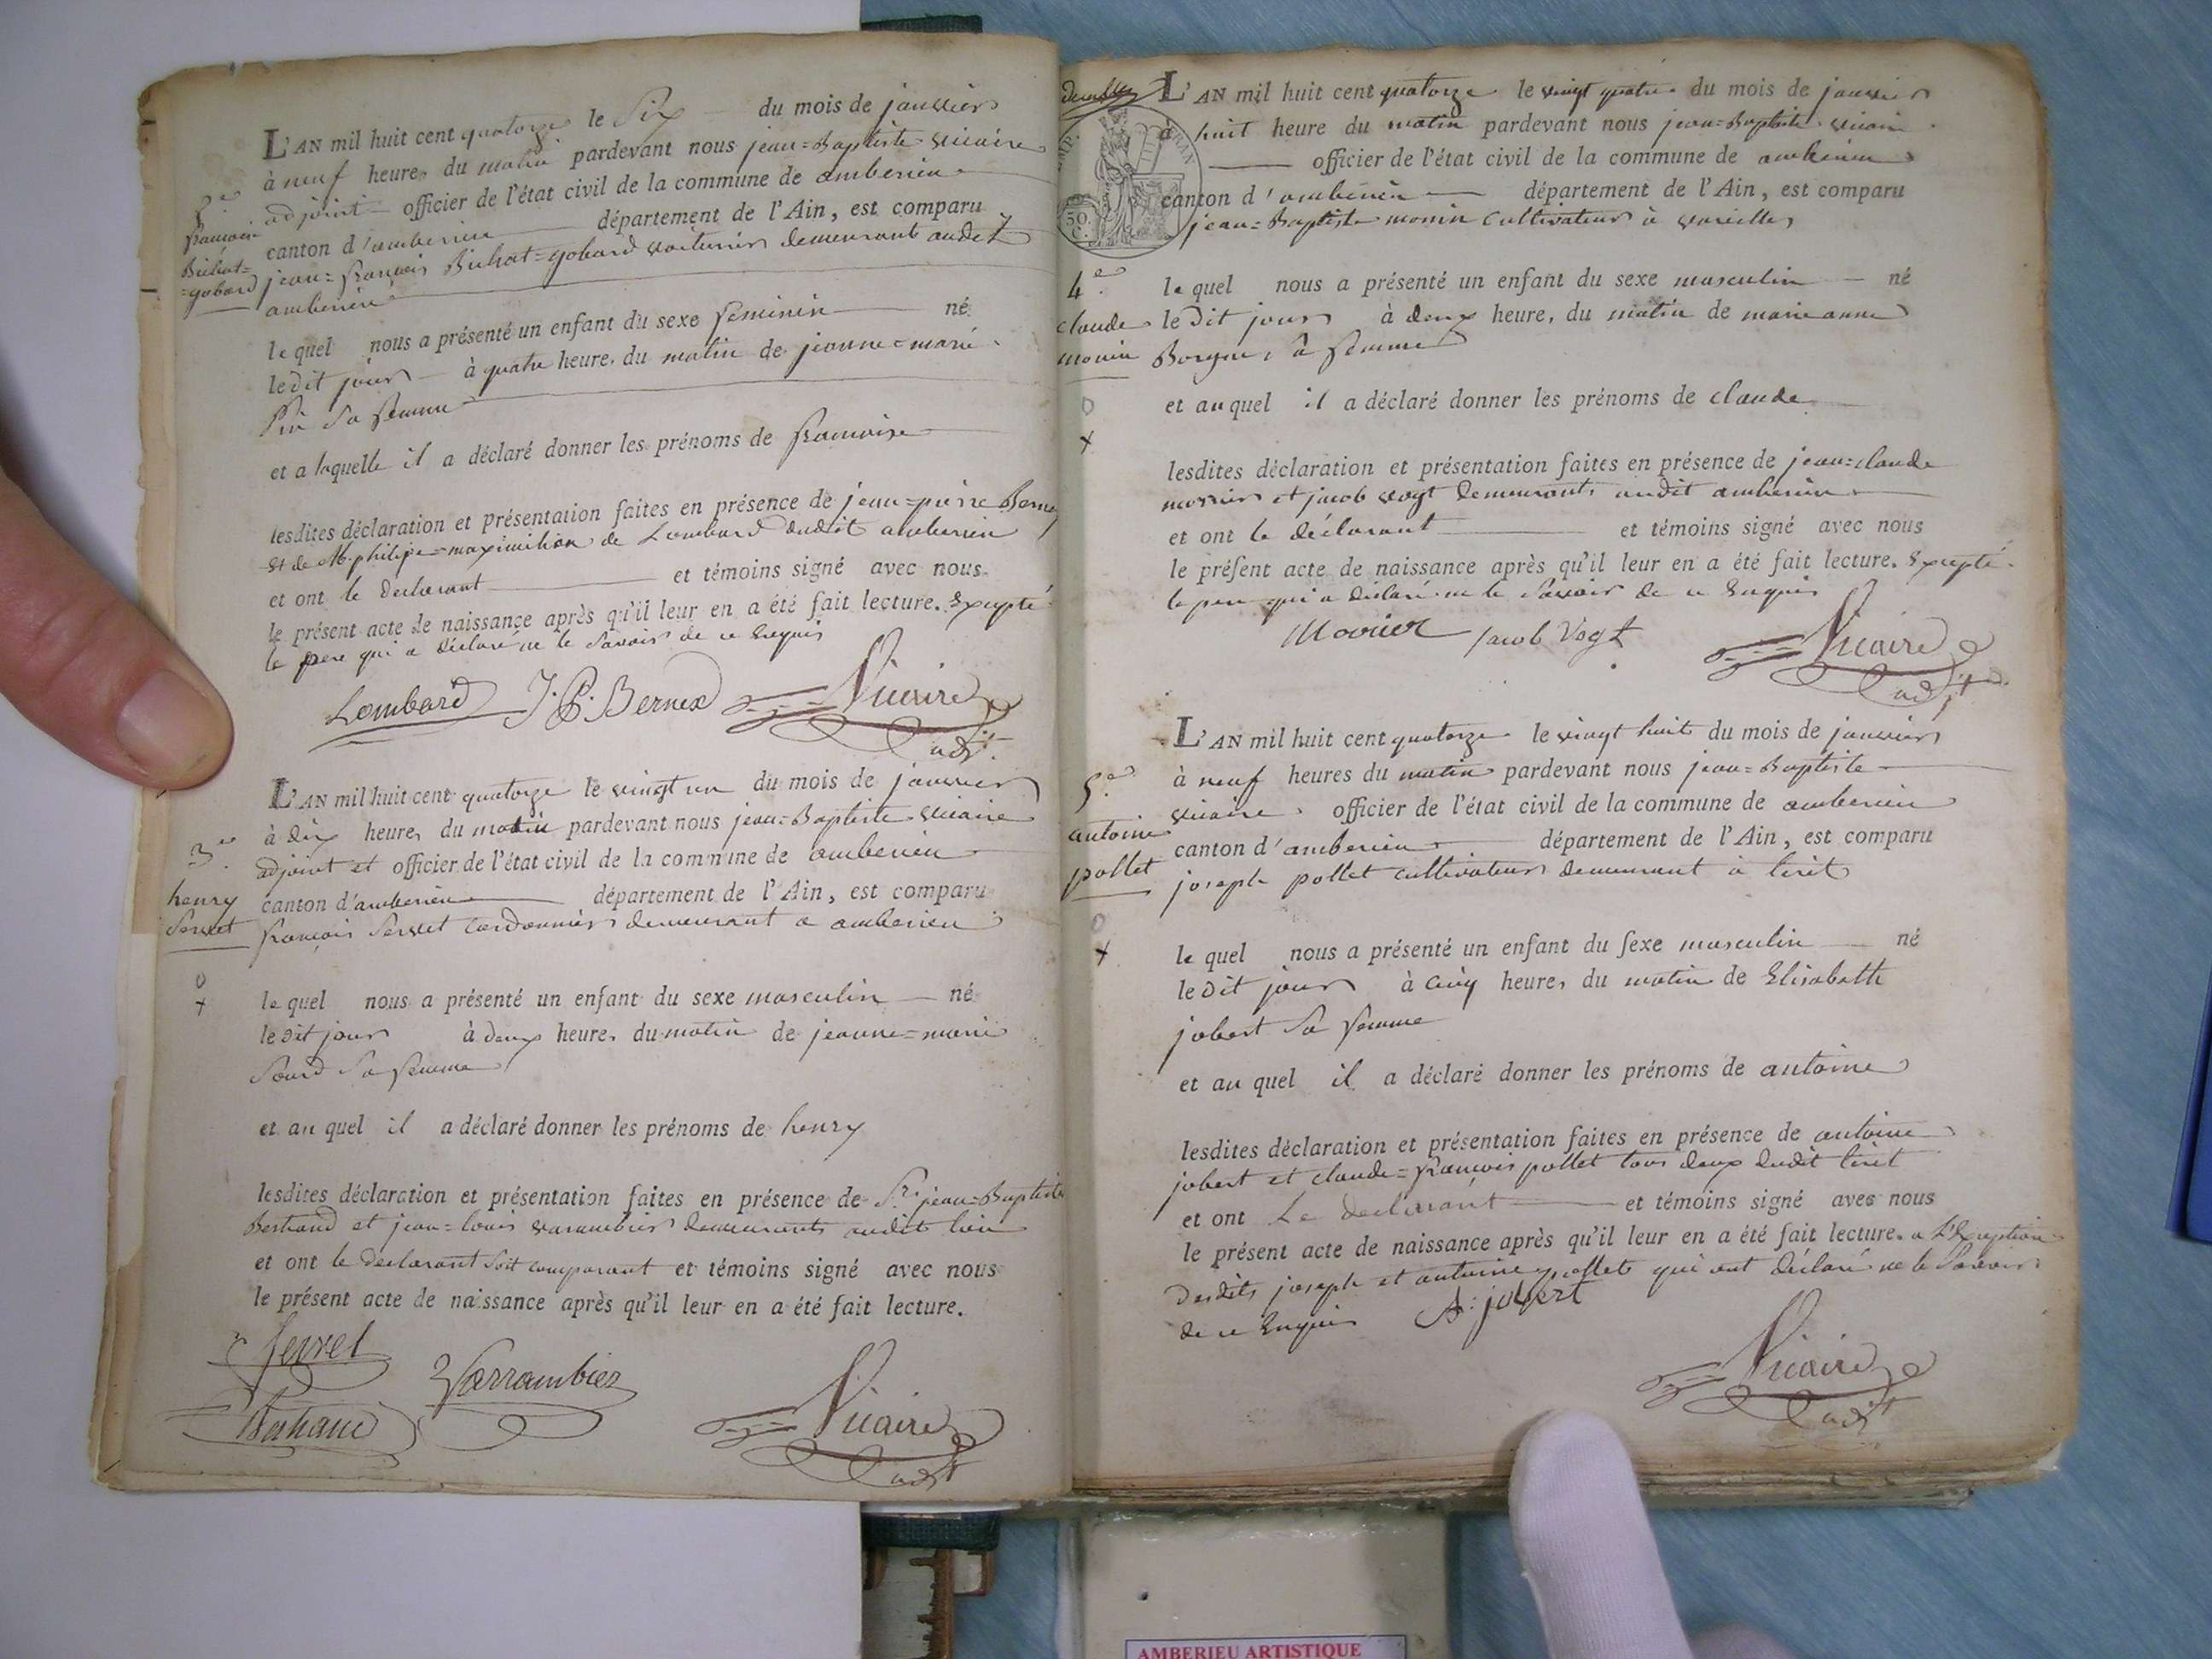 L'AN mil huit cent quatorze le Six du mois de janvier
à neuf heures du matin pardevant nous jean=Baptiste vicaire
adjoint officier de l'état civil de la commune de amberieu
canton d'amberieu département de l'Ain, est comparu
jean=françois Bichat=gobard voiturier demeurant audit
amberieu
2e
françoise
Bichat=
=gobard
le quel nous a présenté un enfant du sexe feminin né
le dit jour à quatre heures du matin de jeanne=marie
Pin Sa femme
et a laquelle il a déclaré donner les prénoms de françoise
lesdites déclaration et présentation faites en présence de jean=pierre Bernex
et de M. philipe=maximilien de Lombard dudit amberieu
et ont le declarant et témoins signé avec nous
le présent acte de naissance après qu'il leur en a été fait lecture. Excepté
le pere qui a déclaré ne le Savoir de ce Enquis
Lombard J. P. Bernex Vicaire
adjt
L'AN mil huit cent quatorze le vingt un du mois de janvier
à dix heures du matin pardevant nous jean=Baptiste vicaire
adjoint et officier de l'état civil de la commune de amberieu
canton d'amberieu département de l'Ain, est comparu
françois Servet cordonnier demeurant a amberieu
3e
henry
Servet
0
+
le quel nous a présenté un enfant du sexe masculin né
le dit jour à deux heures du matin de jeanne=marie
Sourd Sa femme
et au quel il a déclaré donner les prénoms de henry
lesdites déclaration et présentation faites en présence de Sr. jean=Baptiste
Bertrand et jean=louis varambier demeurants audit lieu
et ont le declarant Soit comparant et témoins signé avec nous
le présent acte de naissance après qu'il leur en a été fait lecture.
Servet
Varrambier
Vicaire
adjt
L'AN mil huit cent quatorze le vingt quatre du mois de janvier
à huit heure du matin pardevant nous jean=Baptiste vicaire
officier de l'état civil de la commune de amberieu
canton d'amberieu département de l'Ain, est comparu
jean=Baptiste monin cultivateur à vareilles
50
C.
4e
claude
monin
0
+
le quel nous a présenté un enfant du sexe masculin né
le dit jour à deux heure, du matin de marie anne
Borgne, Sa femme
et au quel il a déclaré donner les prénoms de claude
lesdites déclaration et présentation faites en présence de jean=claude
morrier et jacob vogt demeurants audit amberieu
et ont le déclarant et témoins signé avec nous
le présent acte de naissance après qu'il leur en a été fait lecture. Excepté
le pere qui a déclaré ne le Savoir de ce Enquis
Jacob Vogt Vicaire
adjt
L'AN mil huit cent quatorze le vingt huit du mois de janvier
à neuf heures du matin pardevant nous jean=Baptiste
vicaire officier de l'état civil de la commune de amberieu
canton d'amberieu département de l'Ain, est comparu
joseph pollet cultivateur demeurant à tiret
5e
antoine
pollet
0
+
le quel nous a présenté un enfant du sexe masculin né
le dit jour à cinq heures du matin de Elisabeth
jobert Sa femme
et au quel il a déclaré donner les prénoms de antoine
lesdites déclaration et présentation faites en présence de antoine
jobert et claude=françois pollet tous deux dudit tiret
et ont Le declarant et témoins signé avec nous
le présent acte de naissance après qu'il leur en a été fait lecture. a l'Exception
desdits joseph et antoine pollet qui ont déclaré ne le Savoir
de ce Enquis A: jobert
Vicaire
adjt
AMBERIEU ARTISTIQUE